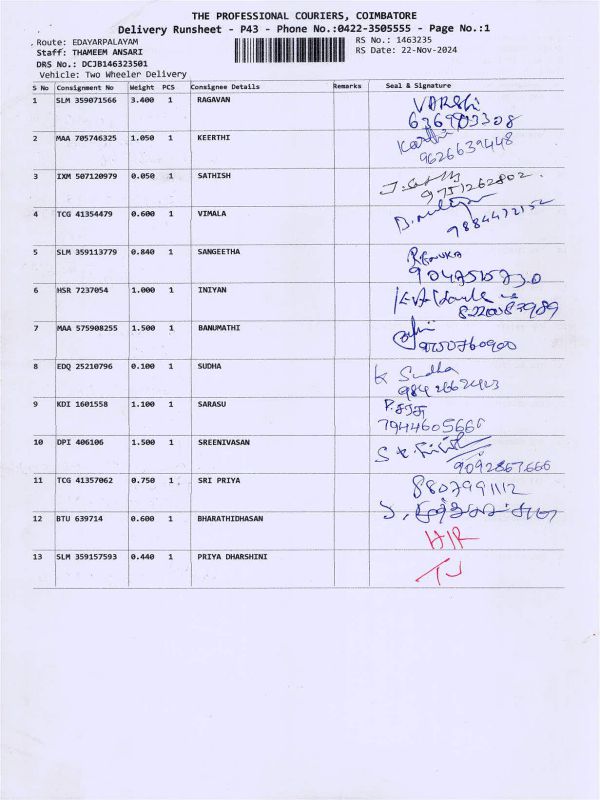 THE PROFESSIONAL COURIERS, COIMBATORE
Delivery Runsheet - P43 - Phone No.:0422-3505555 - Page No.:1
Route: EDAYARPALAYAM RS No.: 1463235
Staff: THAMEEM ANSARI RS Date: 22-Nov-2024
DRS No.: DCJB146323501
Vehicle: Two Wheeler Delivery
S No Consignment No Weight PCS Consignee Details Remarks Seal & Signature
1 SLM 359071566 3.400 1 RAGAVAN
2 MAA 705746325 1.050 1 KEERTHI
9626639448
3 IXM 507120979 0.050 1 SATHISH
9751262802
4 TCG 41354479 0.600 1 VIMALA
5 SLM 359113779 0.840 1 SANGEETHA
RENUKA
6 HSR 7237054 1.000 1 INIYAN
7 MAA 575908255 1.500 1 BANUMATHI
8 EDQ 25210796 0.100 1 SUDHA
K Sudha
9 KDI 1601558 1.100 1 SARASU
10 DPI 406106 1.500 1 SREENIVASAN
11 TCG 41357062 0.750 1 SRI PRIYA
8807991112
12 BTU 639714 0.600 1 BHARATHIDHASAN
13 SLM 359157593 0.440 1 PRIYA DHARSHINI